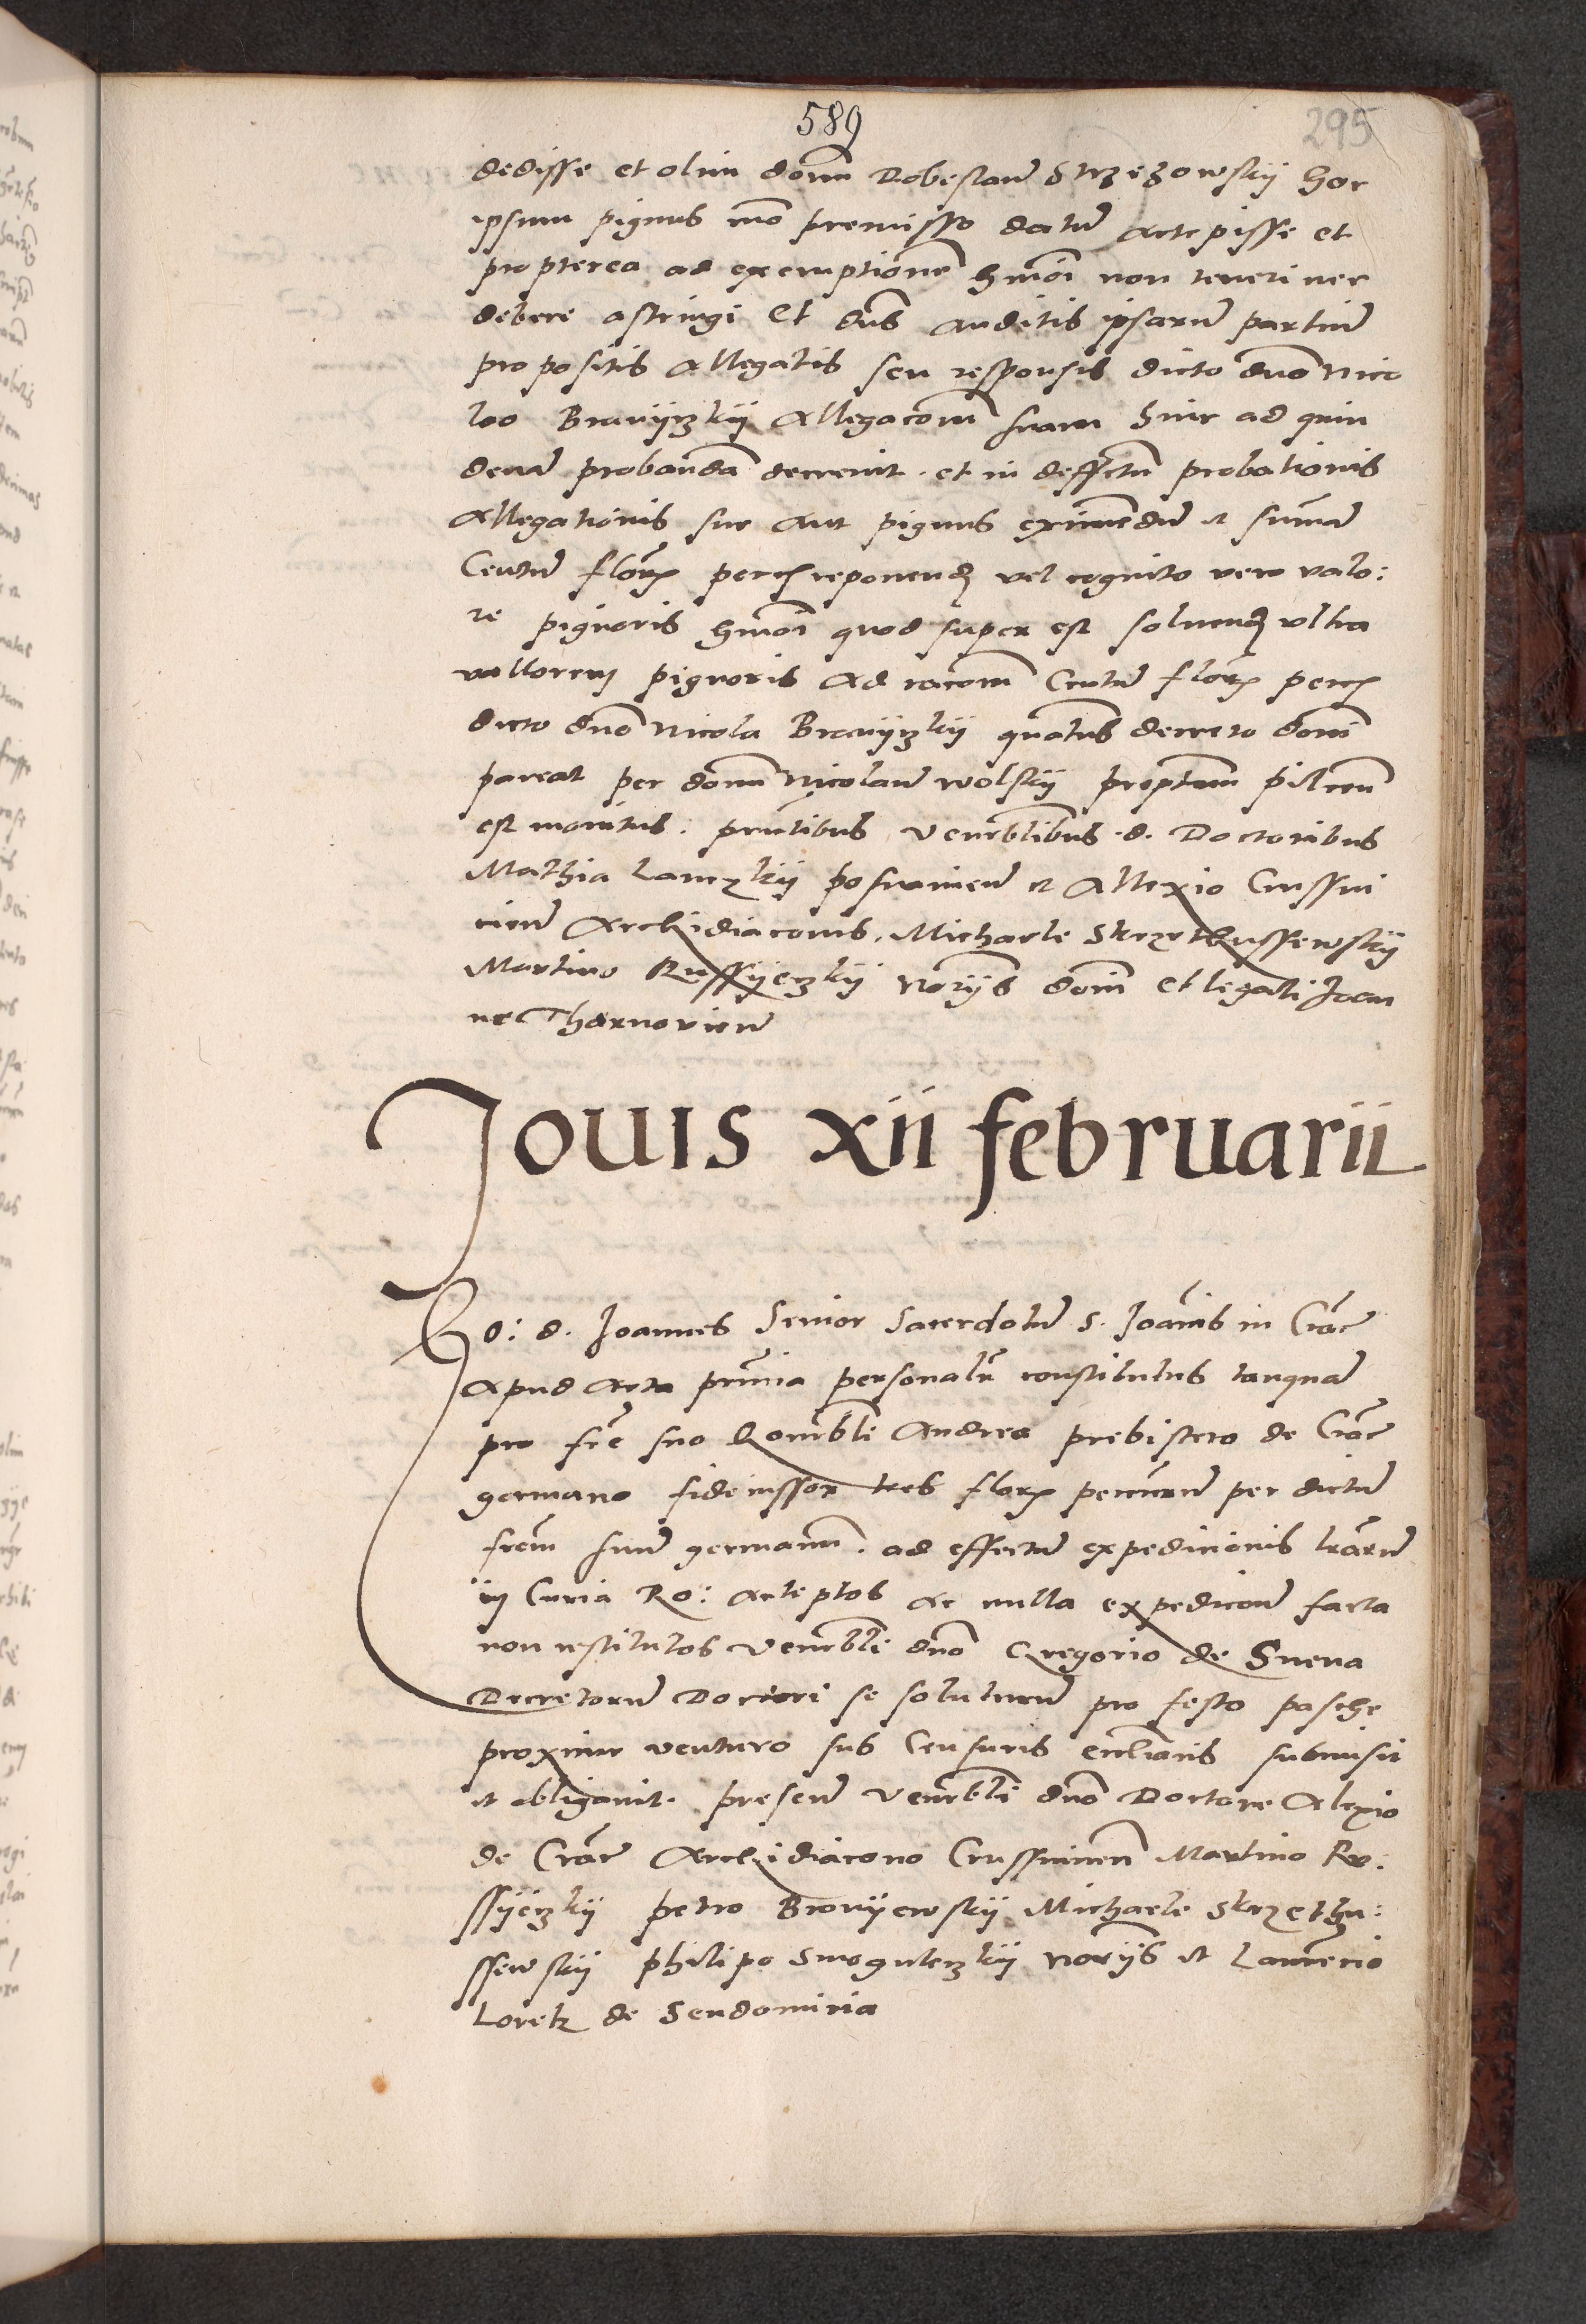 589
295
dedisse et olim donm Dobeslaum Strzezowskij hoc
ipsum pignus mo premisso datum accepisse et
propterea ad exemptionem hmoi non teneri nec
debere astringi Et dns auditis ipsarum partium
propositis allegatis seu responsis dicto dno Nico
lao allegacom suam hinc ad quin
denam probandam decrevit. et in deffectum probationis
allegationis sue aut pignus eximendum et summam
Centum flor pec reponend vel cognito vero valo:
re pignoris hmoi quod super est solvend ultra
vallorem pignoris ad racom Centum flor pec
dicto dno Nicola quatenus decreto domi
pareat per donm Nicolaum Wolskij preptm pilcen
est monitus. pntibus venerblibus .d. Doctoribus
Mathia Lanczkij posnanien et Allexio Crussvi
cien Archidiaconis. Michaele Skrzethussewskij
Martino Russyeczkij Norijs domi et legati Joan
ne Tharnovien
Jovis xii februarii
Ho: d. Joannes Senior Sacerdotum S. Joannis in Crac
apud acta pnia personalr constitutus tanquam
pro fre suo honorbli Andrea prebistero de Crac
germano fideiussor tres flor pecun per dictum
frem suum germanum. ad effectum expedicionis lrarum
in Curia Ro: acceptos ac nulla expedicone facta
non restitutos venerbli dno Gregorio de Snena
Decretorum Doctori se soluturum pro festo pasche
proxime venturo sub Censuris ecclianis submisit
et obligavit. presen venerbli dno Doctore Alexio
de Crac Archidiacono Crussvicien Martino Ru:
ssijeczkij petro Bronijewskij Michaele Skrzethu:
ssewskij philipo Smoguleczkij Norijs et Laurencio
Loretz de Sendomiria